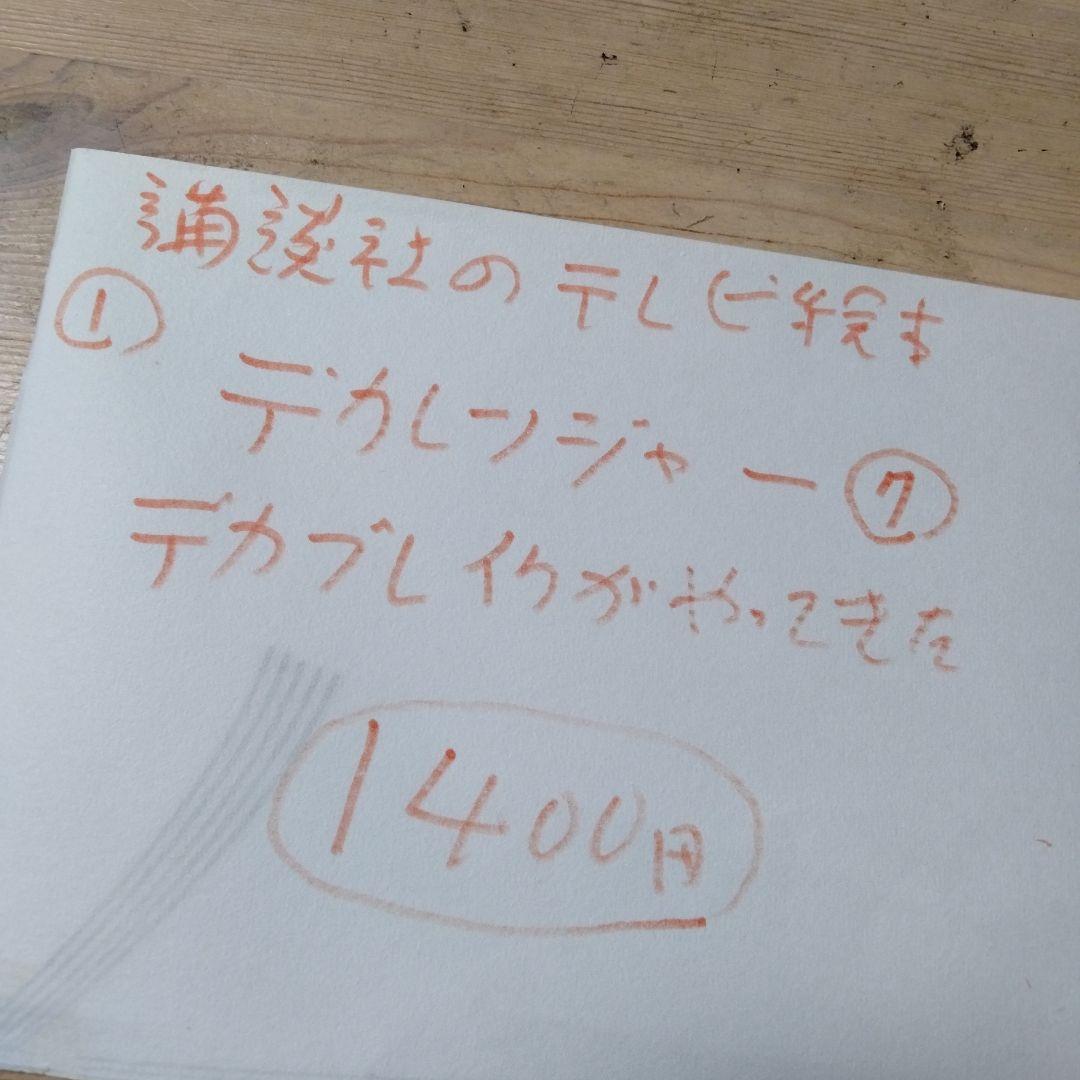 講談社のテレビ絵本
① デカレンジャー⑦
デカブレイクがやってきた
1400円